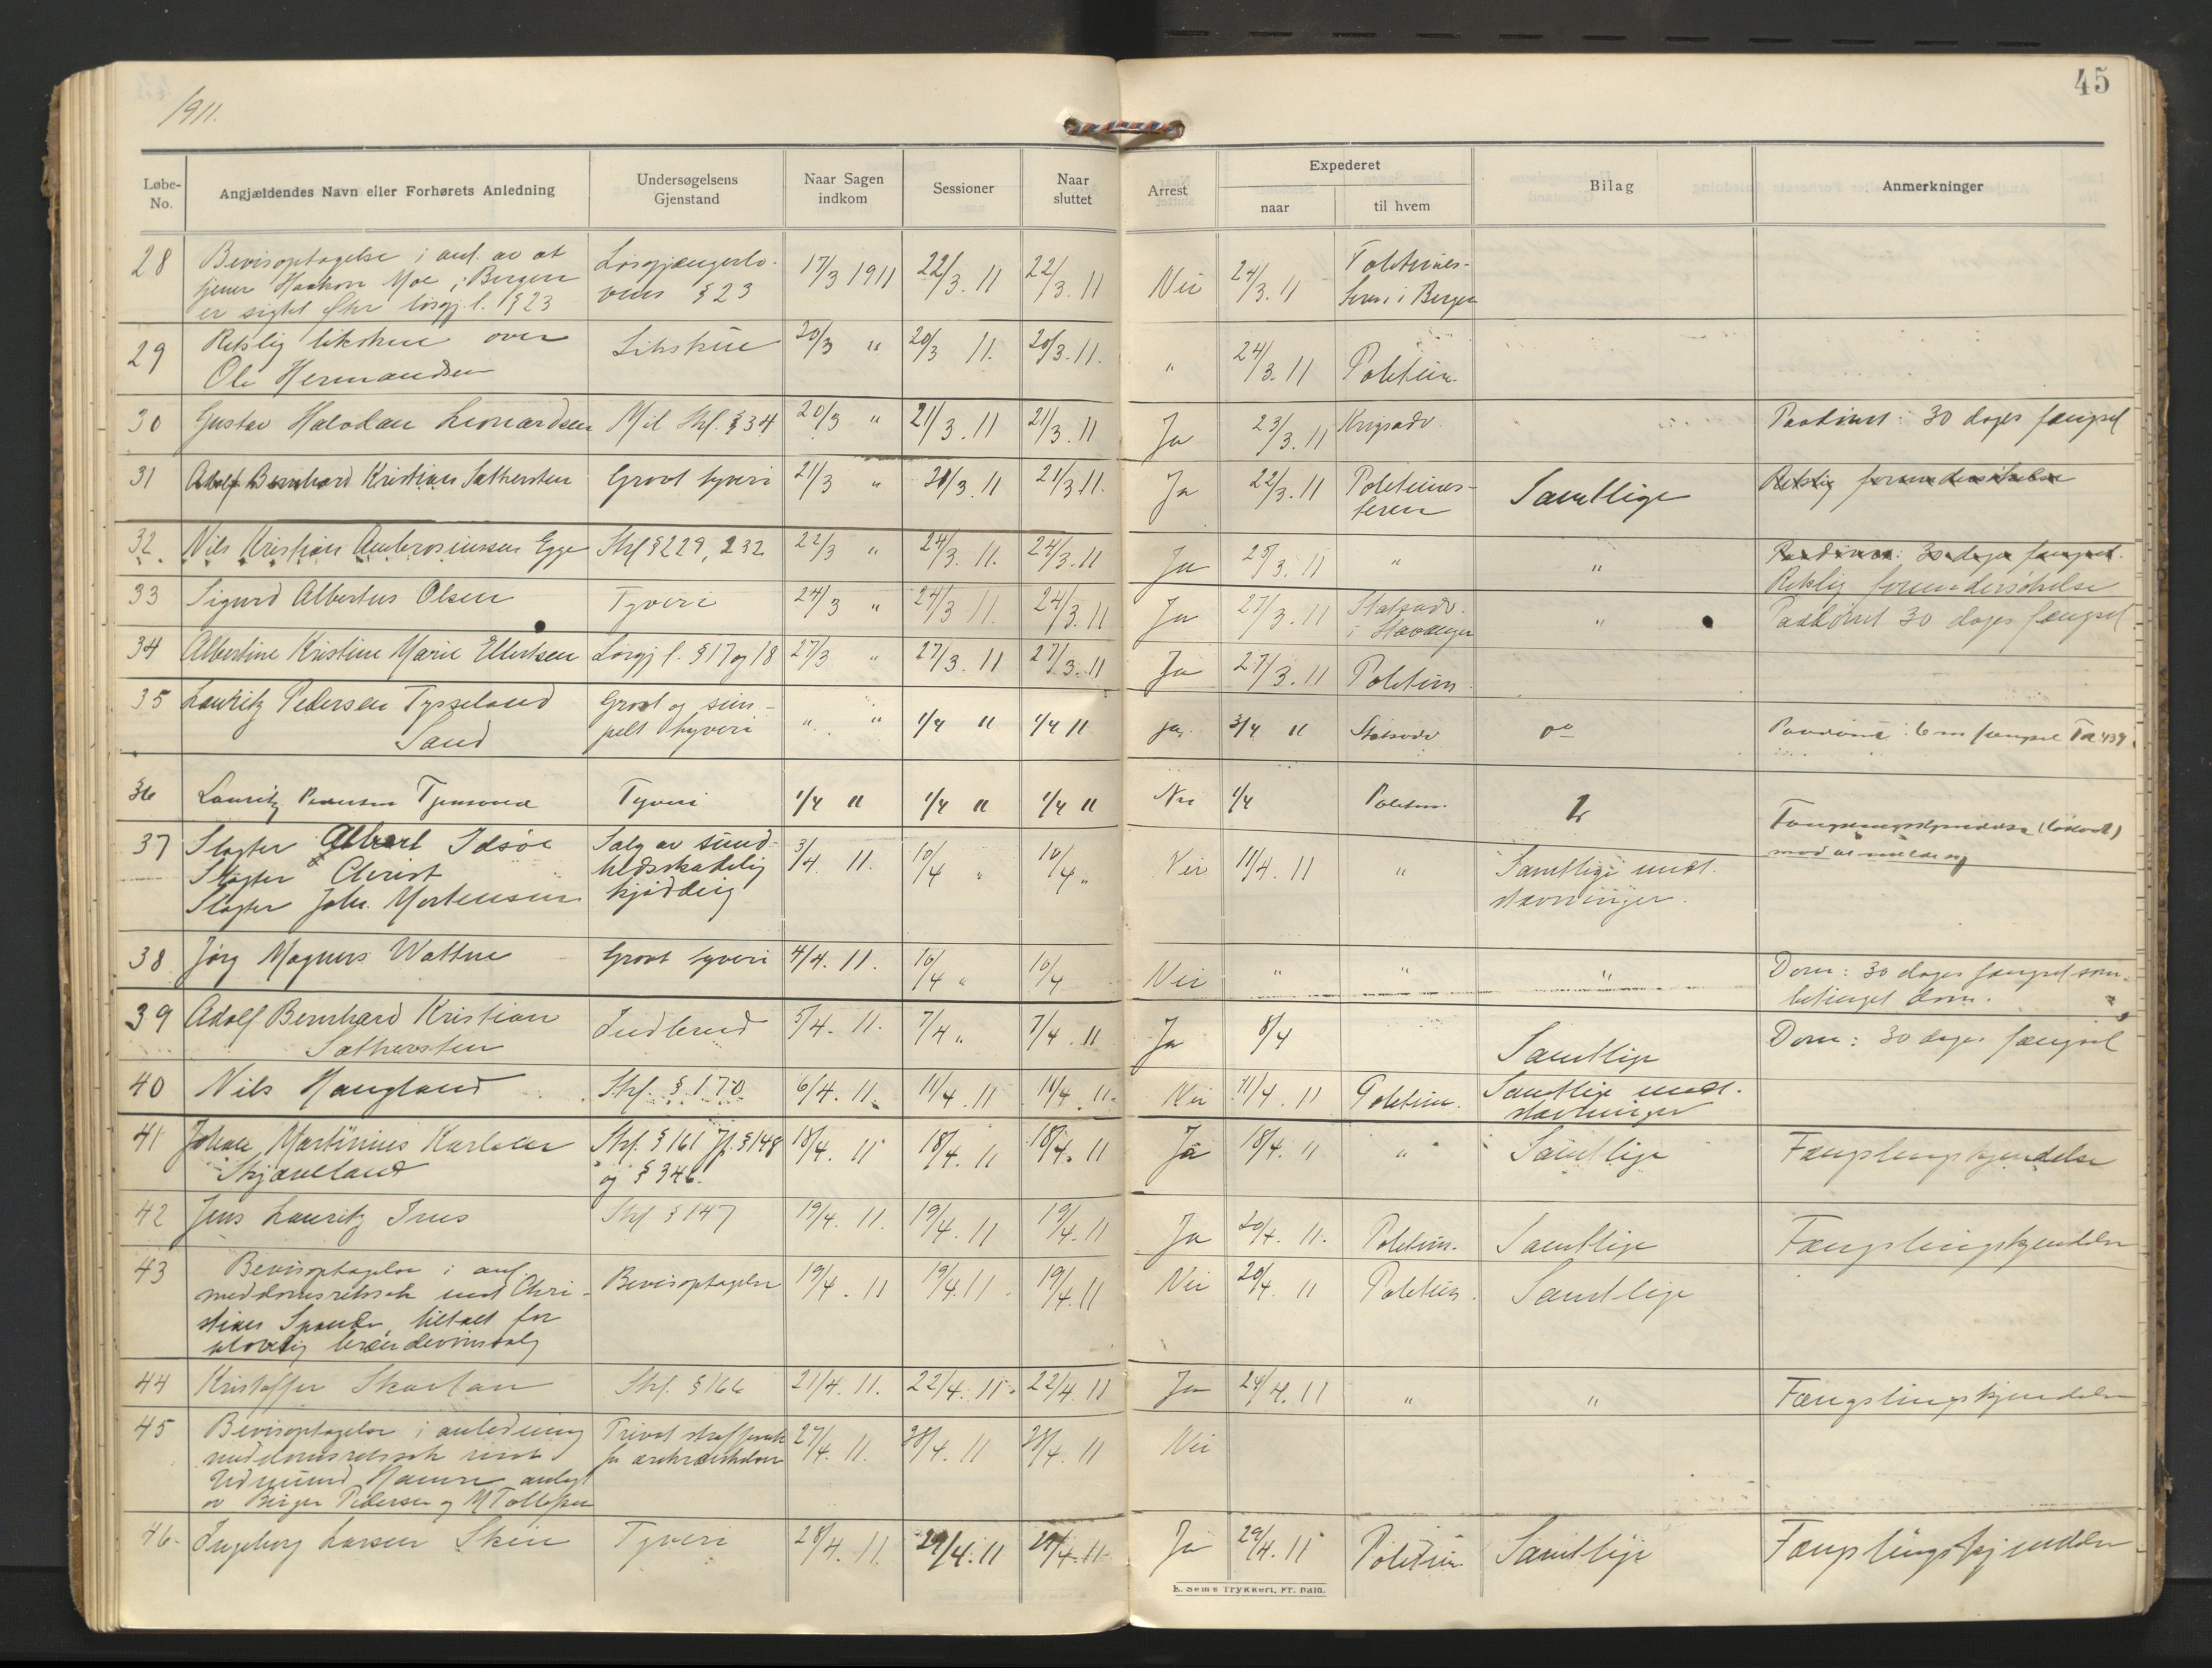 1911.
45
Løbe-No. Angjældendes Navn eller Forhørets Anledning Undersøgelsens Gjenstand Naar Sagen indkom Sessioner Naar sluttet Arrest Expederet naar til hvem Bilag Anmerkninger
28 Bevisoptagelse i anl. av at Løsgjængerlo- 17/3 1911 22/3. 11 22/3. 11 Nei 24/3. 11
tjener Haakon Moe i Bergen vens § 23
er sigtet efter løsgj. l. § 23
29 Retslig likskue over Likskue 20/3 " 20/3 11. 20/3. 11. " 24/3. 11 Politim.
Ole Hermandsen
30 Gustav Halvdan Leonardsen Mil Strl. § 34 20/3 " 21/3. 11 21/3. 11 Ja 23/3. 11 Krigsadv. Paadømt: 30 dages fængsel
31 Adolf Bernhard Kristian Sathersten Grovt tyveri 21/3 " 21/3. 11 21/3. 11. Ja 22/3. 11 Politimes- Samtlige Retslig forundersøkelse
teren
32. Nils Kristian Ambrosiussen Egge Strl § 229, 232 22/3 " 24/3. 11. 24/3. 11 Ja 25/3. 11 " " Paadømt: 30 dages fængsel.
Retslig forundersøkelse
33 Sigurd Albertus Olsen Tyveri 24/3 " 24/3 11. 24/3. 11 Ja 27/3. 11 Statsadv. " Paadømt 30 dages fængsel
i Stavanger
34 Albertine Kristine Marie Ellertsen Løsgj l. § 17 og 18 27/3 " 27/3. 11 27/3. 11 Ja 27/3. 11 Politim
35 Lauritz Pedersen Tysseland Grovt og sim- " " 1/4 " 1/4 11 ja. 3/4 " Statsadv do Paadømt: 6 m fængsel
Sand pelt tyveri
36 Lauritz Pedersen Tyveri 1/4 " 1/4 " 1/4 " Nei 1/4 Politim.
37 Slagter Albert Idsøe Salg av sund- 3/4 11. 10/4 " 10/4 " Nei 11/4. 11 " Samtlige undt.
Slagter Christ hedsskadelig stevninger.
Slagter Joh. Mortensen kjødding
38 Jørg Magnus Wattne Grovt tyveri 4/4. 11. 10/4 " 10/4 Nei " " " Dom: 30 dages fængsel som
betinget dom.
39 Adolf Bernhard Kristian Indbrud 5/4. 11. 7/4 " 7/4. 11 Ja 8/4 Samtlige Dom: 30 dages fængsel
Sathersten
40 Nils Haugland Strl. § 170 6/4. 11. 11/4. 11 11/4. 11. Nei 11/4. 11 Politim. Samtlige undt.
stevninger
41 Johan Martinius Karlsen Strl. § 161 Jf. § 148 18/4. 11 18/4. 11 18/4. 11 Ja 18/4. 11 " Samtlige Fængslingskjendelse
Skjæveland og § 346.
42 Jens Lauritz Strl § 147 19/4. 11. 19/4. 11 19/4. 11 Ja 20/4. 11. Politim. Samtlige Fængslingskjendelse
43 Bevisoptagelse i anl. Bevisoptagelse 19/4. 11 19/4. 11. 19/4. 11 Nei 20/4. 11 Politim. Samtlige
meddomsretssak mot Chri-
stian tiltalt for
ulovlig brændevinsalg
44 Kristoffer Strl. § 166 21/4. 11. 22/4. 11. 22/4 11 Ja 24/4. 11 " " Fængslingskjendelse
45 Bevisoptagelse i anledning Privat straffesak 27/4. 11. 28/4. 11 28/4. 11 Nei
meddomsretssak mot for ærekrænkelser
Hamre anlagt
av Birger Pedersen og M Tollefsen
46. Ingeborg Larsen Tyveri 28/4. 11. 29/4. 11 29/4. 11 Ja 29/4. 11 Politim Samtlige Fængslingskjendelse
E. Sem's Trykkeri, Fr.hald.